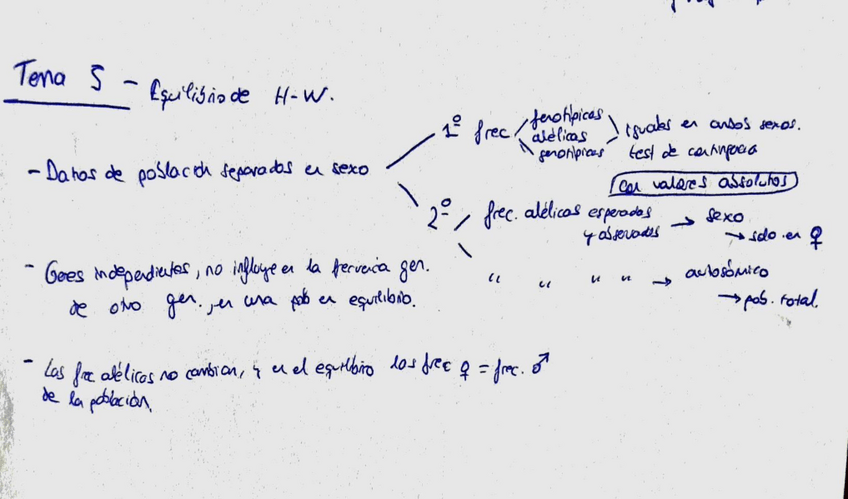 Tema 5 - Equilibrio de H-W.
- Datos de población separados en sexo
1º frec
fenotípicas
alélicas
genotípicas
iguales en ambos sexos.
test de contingencia
con valores absolutos
2º frec. alélicas esperadas
y observadas → sexo
→ solo en ♀
" " " " → autosómico
→ pob. total.
- Genes independientes, no influye en la frecuencia gen.
de otro gen., en una pob en equilibrio.
- Las frec alélicas no cambian, y en el equilibrio las frec ♀ = frec. ♂
de la población.